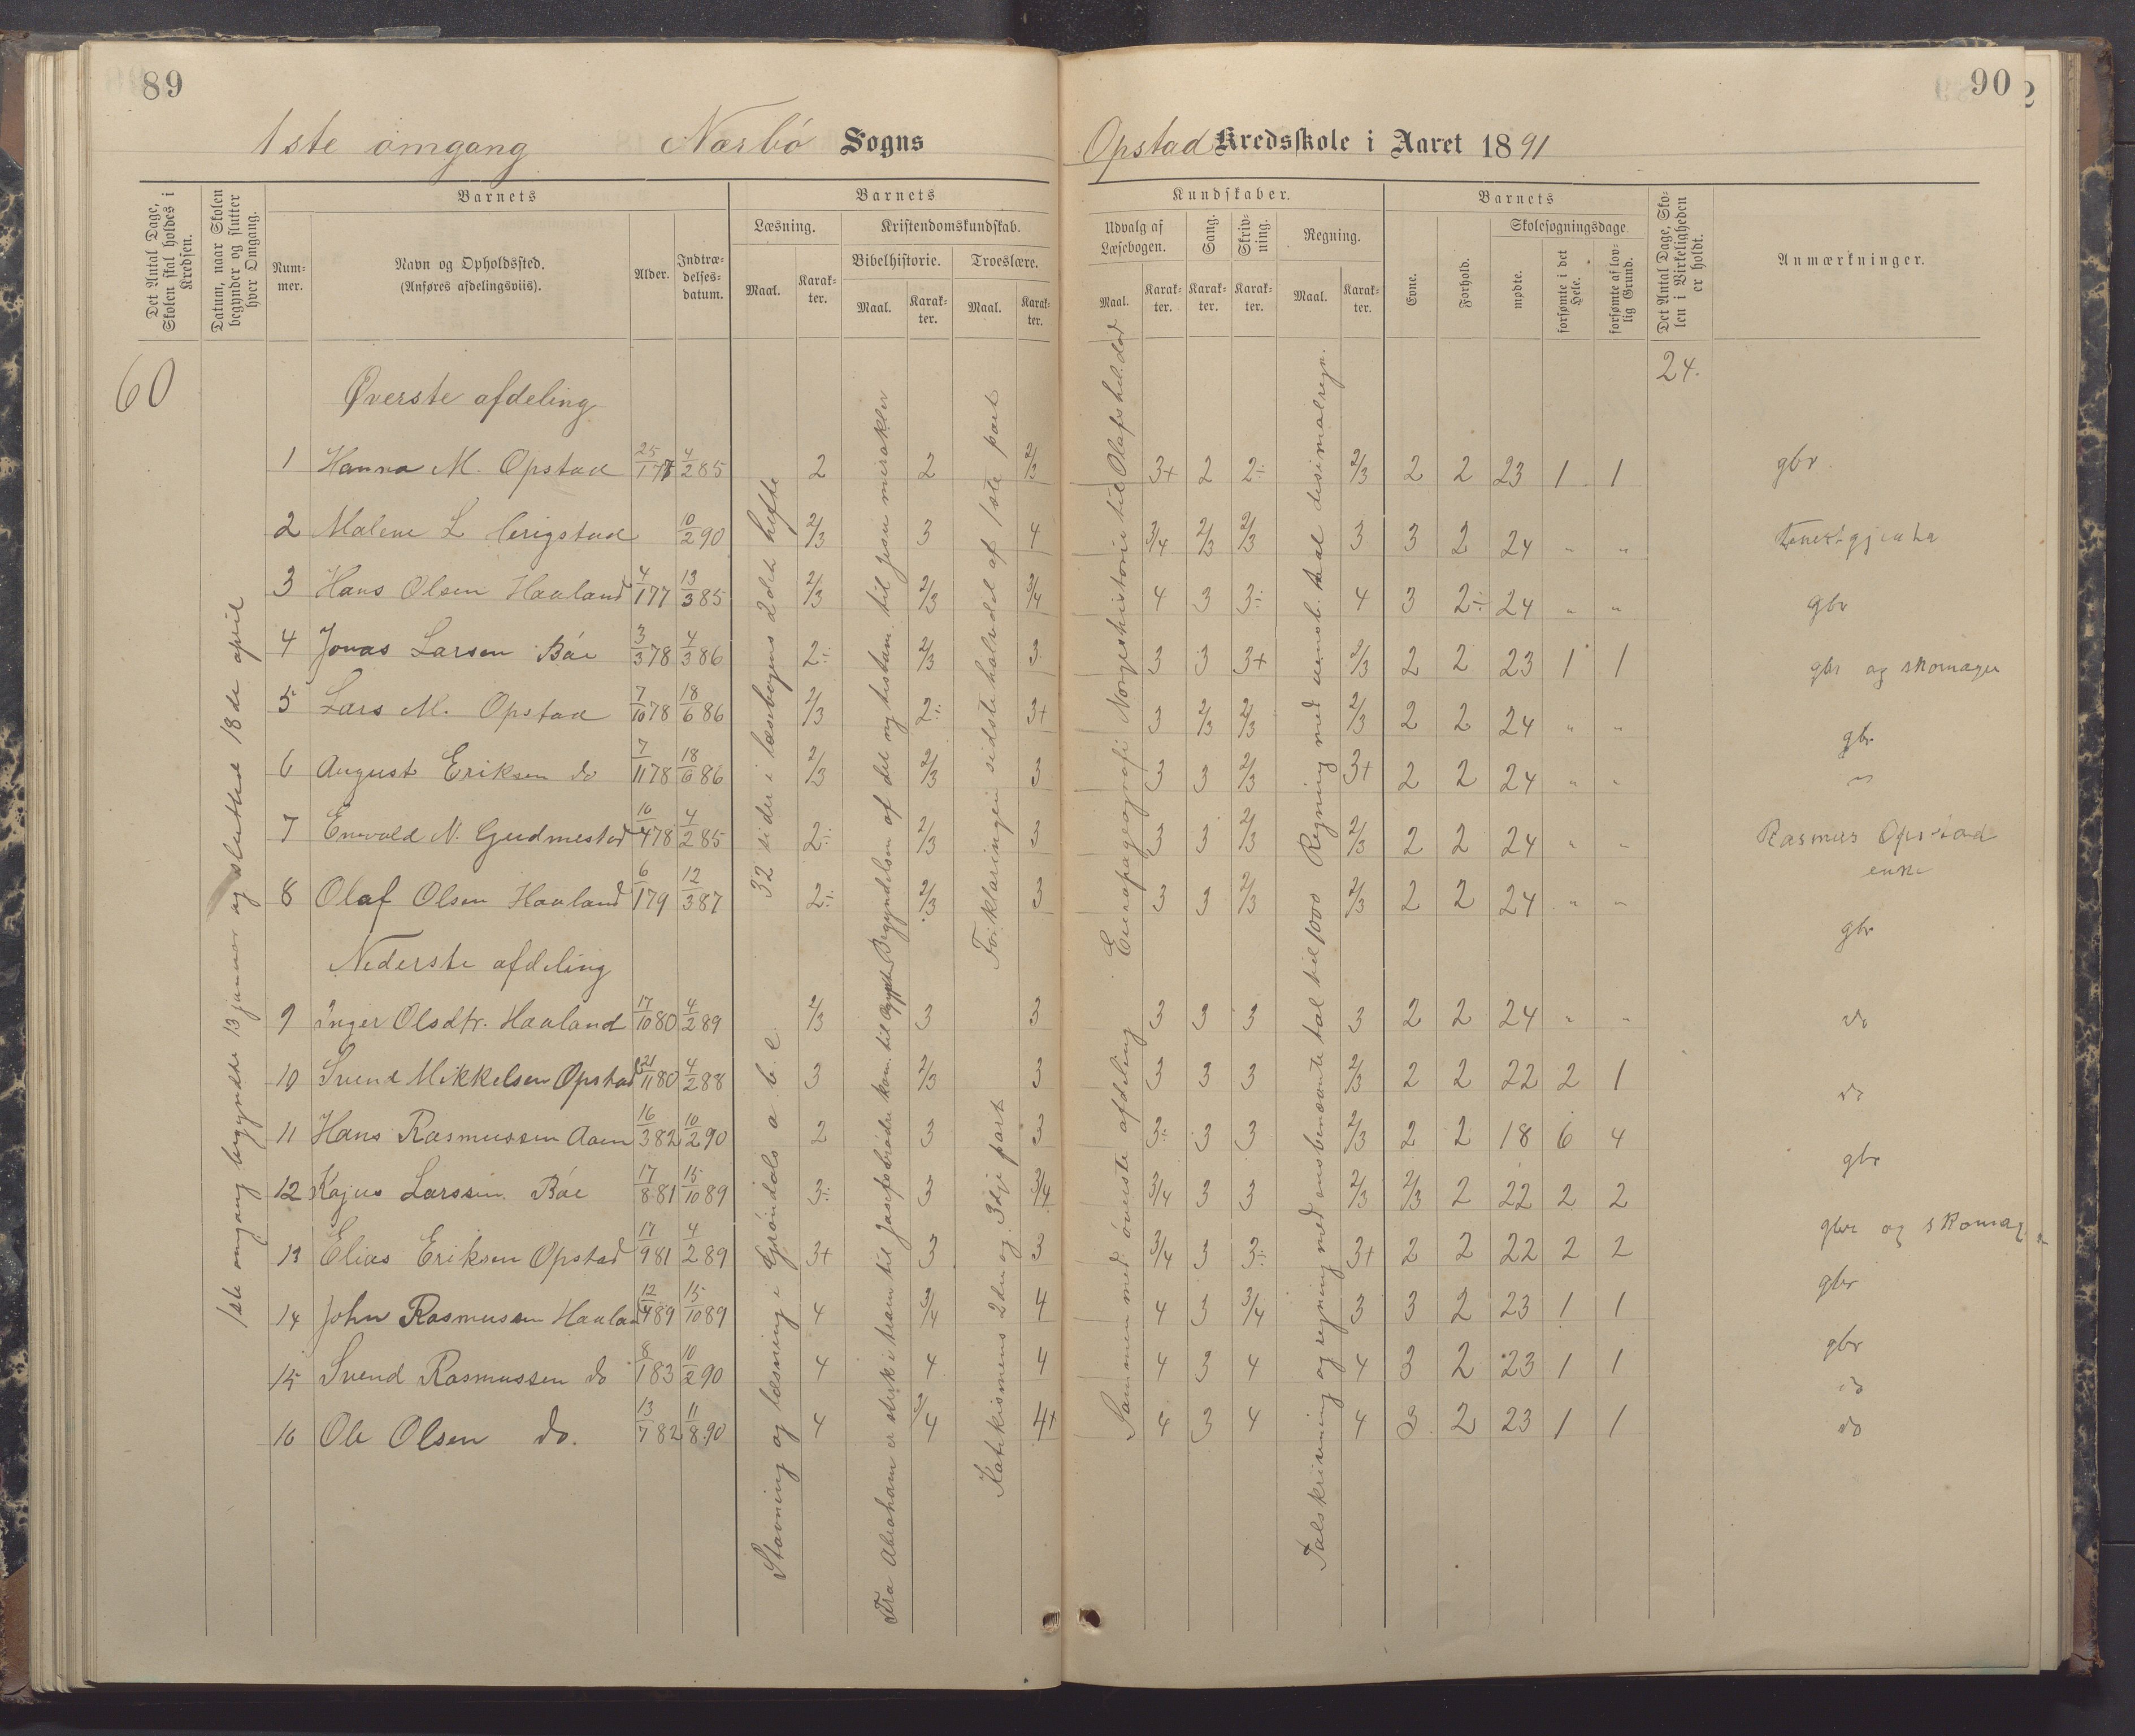 89
90
1ste omgang Nærbø Sogns
Opstad Kredsskole i Aaret 1891
Det Antal Dage, Skolen skal holdes i Kredsen.
Datum, naar Skolen begynder og slutter hver Omgang.
Barnets
Nummer.
Navn og Opholdssted. (Anføres afdelingsviis).
Alder.
Indtrædelsesdatum.
Barnets
Læsning.
Maal.
Karakter.
Kristendomskundskab.
Bibelhistorie.
Maal.
Karakter.
Troeslære.
Maal.
Karakter.
Kundskaber.
Udvalg af Læsebogen.
Maal.
Karakter.
Sang.
Karakter.
Skrivning.
Karakter.
Regning.
Maal.
Karakter.
Barnets
Evne.
Forhold.
Skolesøgningsdage.
mødte.
forsømte i det Hele.
forsømte af lovlig Grund.
Det Antal Dage, Skolen i Virkeligheden er holdt.
Anmærkninger.
60
24.
1ste omgang begyndte 13 januar og slutted 18de april
Øverste afdeling
32 sider i læsebogens 2det hefte
Begyndelsen af det ny testam. til Jesu mirakler
Forklaringen sidste halvdel af 1ste part
Europageografi Norgeshistorie til Olafs hel. død
Regning med uensb. tal desimalregn.
1 Hanna M. Opstad 25/1 77 4/2 85 2 2 2/3 3+ 2 2÷ 2/3 2 2 23 1 1 gbr.
2 Malene L. 10/2 90 2/3 3 4 3/4 2/3 2/3 3 3 2 24 " "
3 Hans Olsen Haaland 4/1 77 13/3 85 2/3 2/3 3/4 4 3 3÷ 4 3 2÷ 24 " " gbr
4 Jonas Larsen Bøe 3/3 78 4/3 86 2÷ 2/3 3 3 3 3+ 2/3 2 2 23 1 1 gbr og skomager
5 Lars M. Opstad 7/10 78 18/6 86 2/3 2÷ 3+ 3 2/3 2/3 2/3 2 2 24 " " gbr
6 August Eriksen do 7/11 78 18/6 86 2/3 2/3 3 3 3 2/3 3+ 2 2 24 " " "
7 Enevald N. Gudmestad 10/4 78 4/2 85 2÷ 2/3 3 3 3 2/3 2/3 2 2 24 " " Rasmus Opstad enke
8 Olaf Olsen Haaland 6/1 79 12/3 87 2÷ 2/3 3 3 3 2/3 2/3 2 2 24 " " gbr
Nederste afdeling
Stavning og læsning i Grøndals a b c
Fra Abraham er sterk i troen til Josefs brødre kom. til Ægypten
Katekismens 2den og 3dje part
Sammen med øverste afdeling
Talskrivning og regning med ensbenævnte tal til 1000
9 Inger Olsdtr. Haaland 17/10 80 4/2 89 2/3 3 3 3 3 3 3 2 2 24 " " do
10 Svend Mikkelsen Opstad 21/11 80 4/2 88 3 2/3 3 3 3 3 2/3 2 2 22 2 1 do
11 Hans Rasmussen Aam 16/3 82 10/2 90 2 3 3 3÷ 3 3 2/3 2 2 18 6 4 gbr
12 Kajus Larssen Bøe 17/8 81 15/10 89 3÷ 3 3/4 3/4 3 3 2/3 2/3 2 22 2 2 gbr og skomag
13 Elias Eriksen Opstad 17/9 81 4/2 89 3+ 3 3 3/4 3 3÷ 3+ 2 2 22 2 2 gbr
14 John Rasmussen Haaland 15/10 89 4 3/4 4 4 3 3/4 3 3 2 23 1 1 gbr
15 Svend Rasmussen do 8/1 83 10/2 90 4 4 4 4 3 4 4 3 2 23 1 1 do
16 Ole Olsen do. 13/7 82 11/8 90 4 3/4 4+ 4 3 4 4 3 2 23 1 1 do